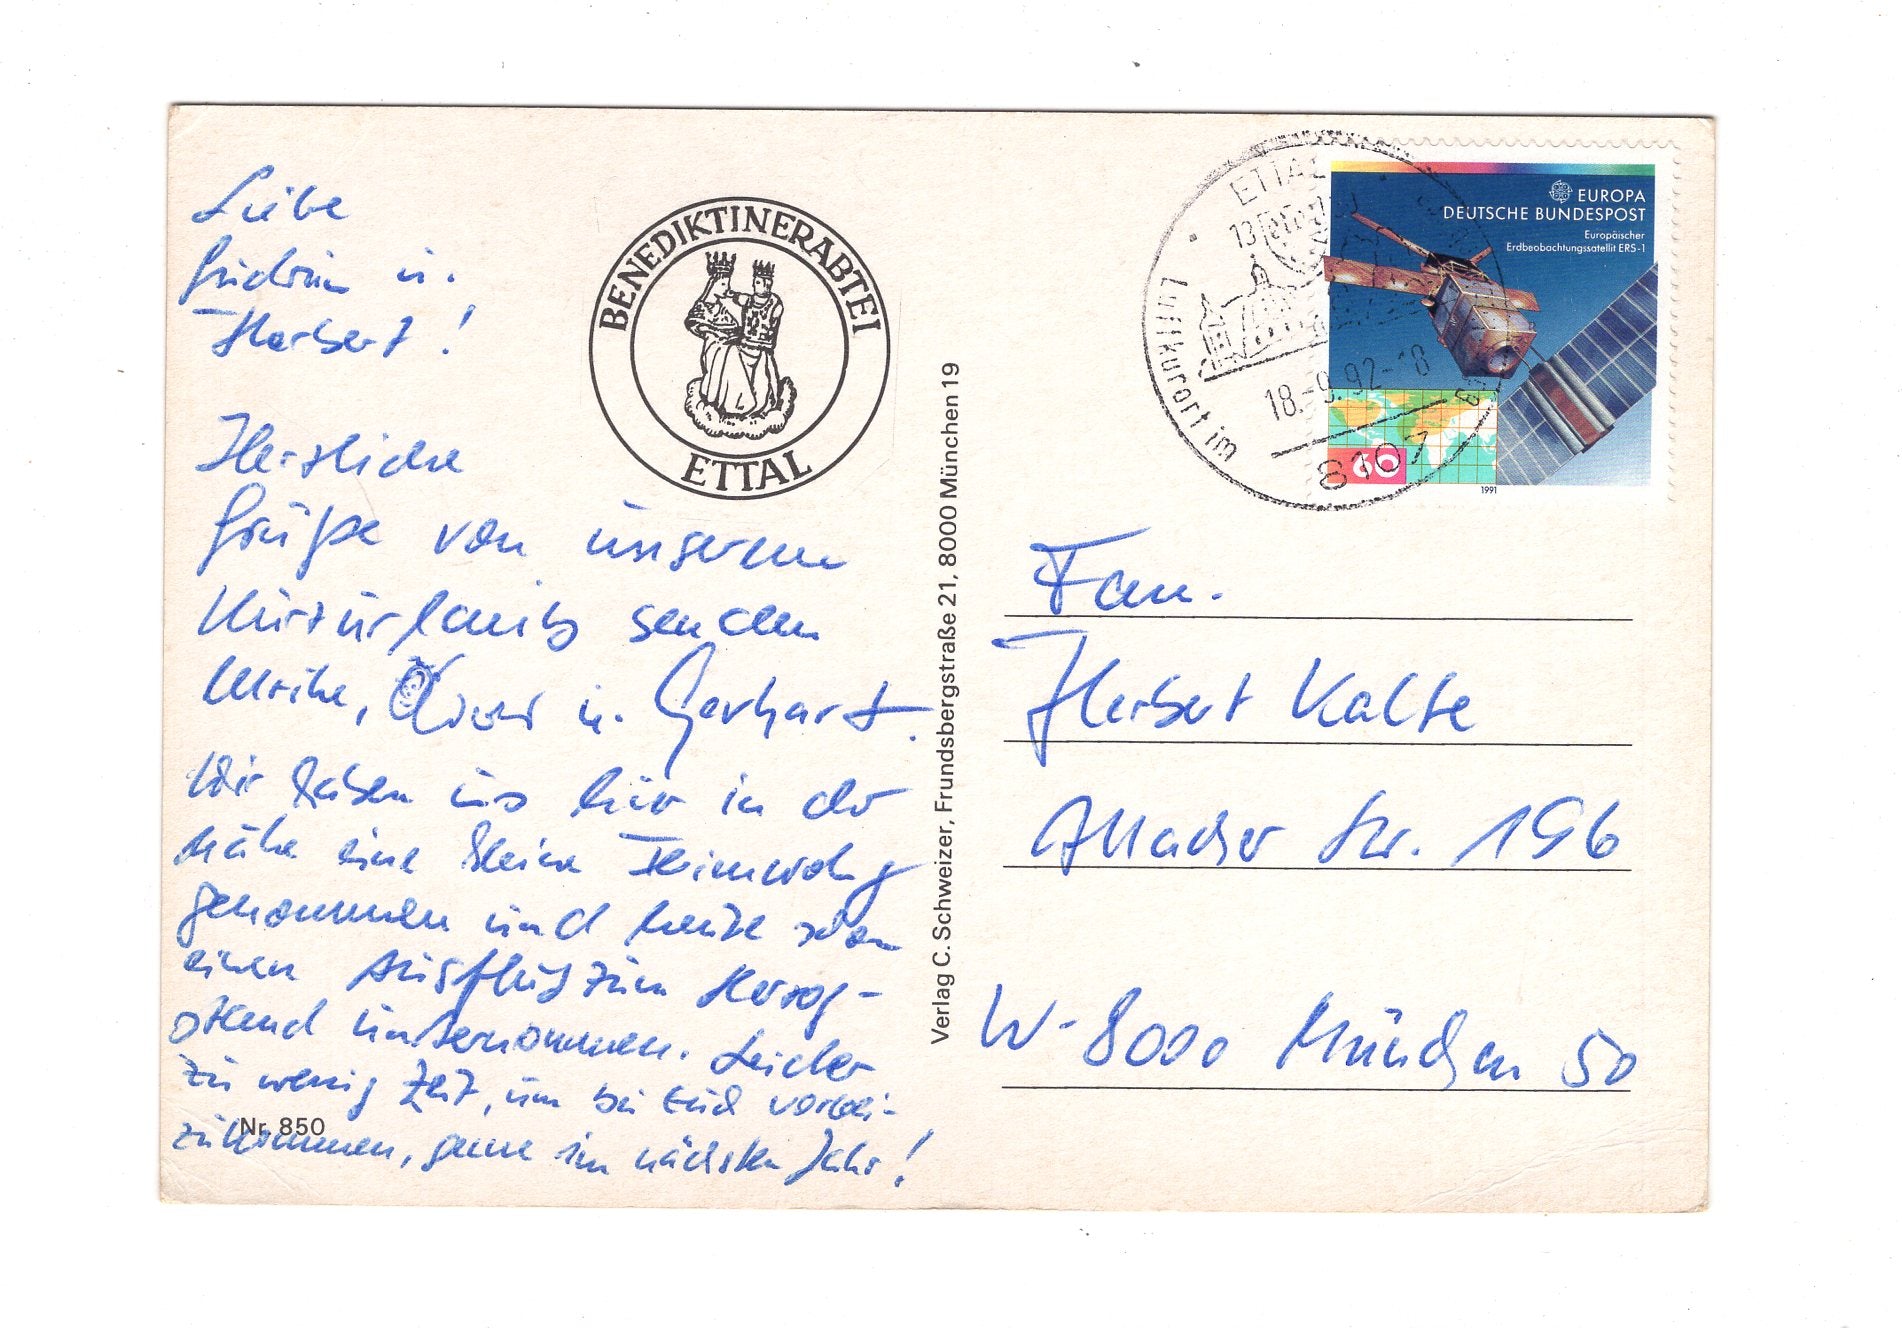 Liebe
Gudrun u.
Herbert!
Herzliche
Grüße von unserem
Kurzurlaub senden
Ulrike, u. Gerhart.
Wir haben uns hier in der
Nähe eine kleine Ferienwohng
genommen und heute schon
einen Ausflug zum Herzog-
stand unternommen. Leider
zu wenig Zeit, um bei Euch vorbei-
zukommen, gerne im nächsten Jahr!
Nr. 850
BENEDIKTINERABTEI
ETTAL
Verlag C. Schweizer, Frundsbergstraße 21, 8000 München 19
ETTAL
Luftkurort im
18.-9.92-18
8107
EUROPA
DEUTSCHE BUNDESPOST
Europäischer
Erdbeobachtungssatellit ERS-1
60
1991
Fam.
Herbert Kalte
Allacher Str. 196
W-8000 München 50